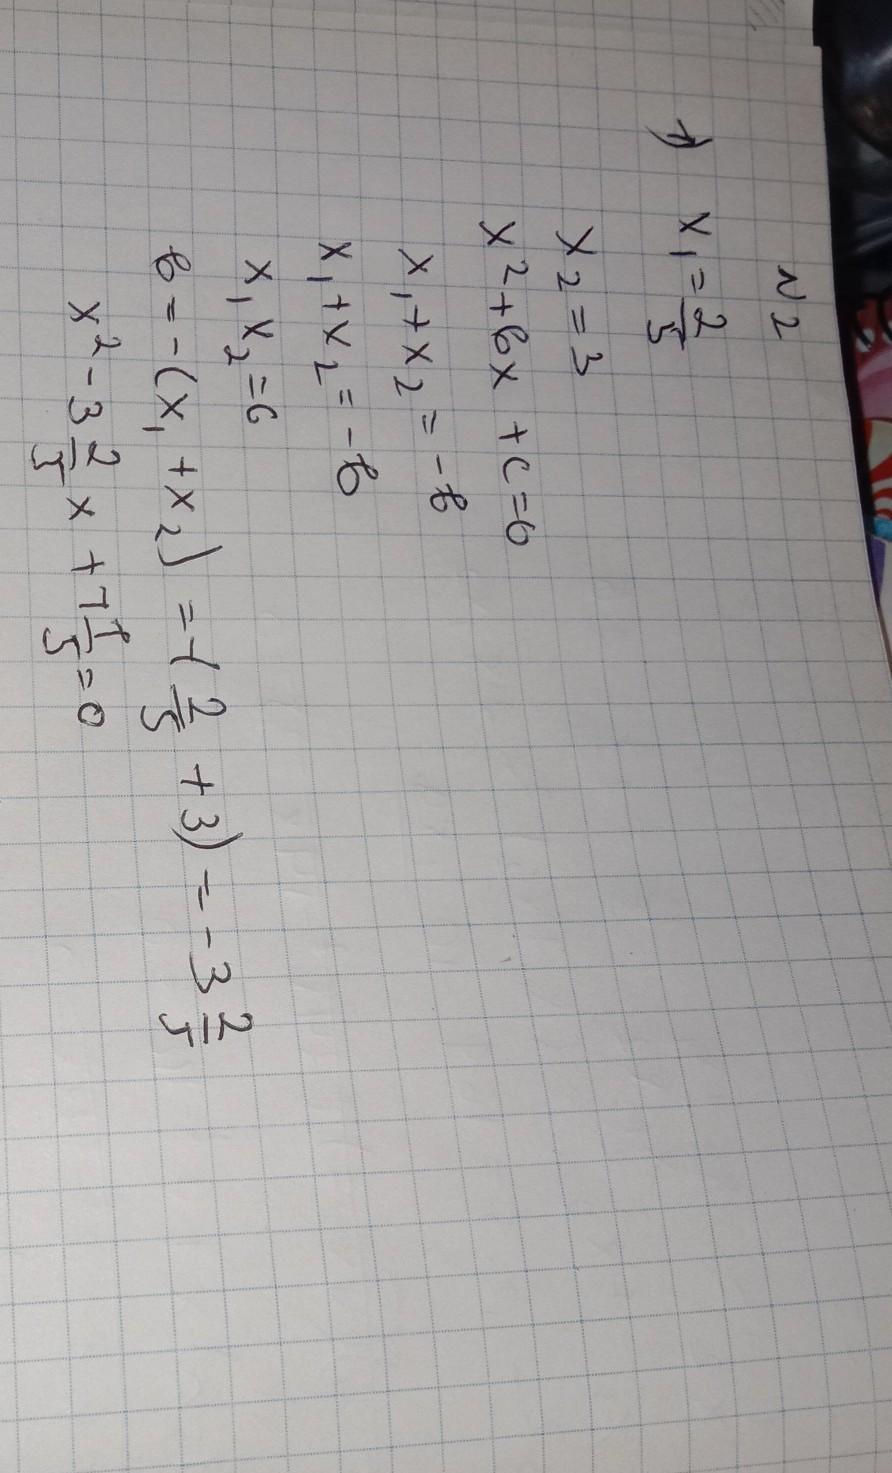 N 2
1) x₁ = 2/5
x₂ = 3
x² + bx + c = 0
x₁ + x₂ = -b
x₁ + x₂ = -b
x₁x₂ = c
b = -(x₁ + x₂) = -(2/5 + 3) = -3 2/5
x² - 3 2/5 x + 7 1/5 = 0